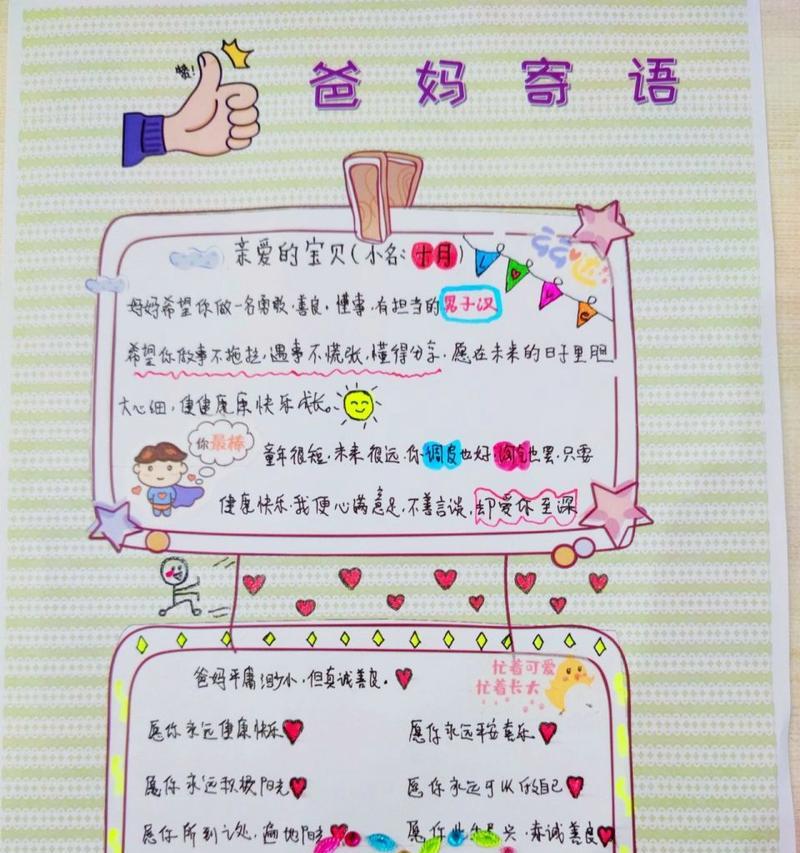 赞!
爸妈寄语
亲爱的宝贝(小名:十月)
LOVE
妈妈希望你做一名勇敢、善良、懂事、有担当的男子汉
希望你做事不拖拉,遇事不慌张,懂得分享,愿在未来的日子里胆
大心细,健健康康快乐成长。
你最棒
童年很短,未来很远,你调皮也好,淘气也罢,只要
健康快乐,我便心满意足,不善言谈,却爱你至深
忙着可爱
忙着长大
爸妈平庸渺小,但真诚善良。
愿你永远健康快乐
愿你永远平安喜乐
愿你永远积极阳光
愿你永远可以做自己
愿你所到之处,遍地阳光
愿你 真诚善良